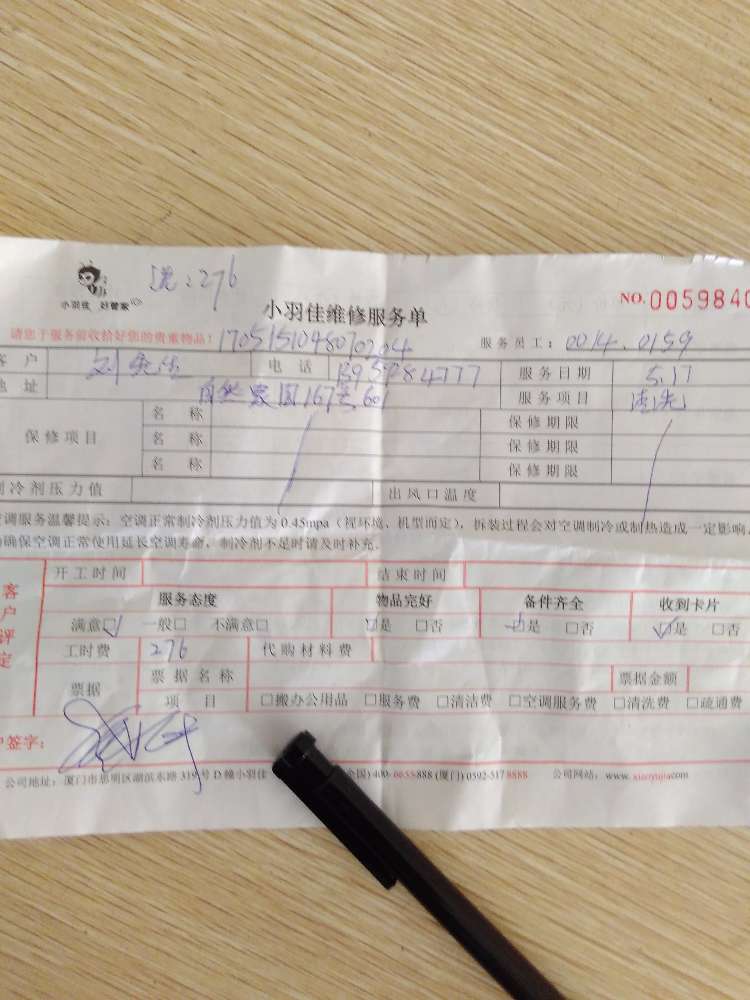 小羽佳 好管家
:276
小羽佳维修服务单
NO. 0059840
请您于服务前收拾好您的贵重物品!
1705151048070204
服务员工: 0014. 0159
客 户 刘 电 话 服务日期 5.17
地 址 自然家园167 601 服务项目 清洗
保修项目
名 称 保修期限
名 称 保修期限
名 称 保修期限
制冷剂压力值 出风口温度
空调服务温馨提示:空调正常制冷剂压力值为0.45mpa(视环境、机型而定),拆装过程会对空调制冷或制热造成一定影响,
确保空调正常使用延长空调寿命,制冷剂不足时请及时补充.
客户评定
开工时间 结束时间
服务态度 物品完好 备件齐全 收到卡片
满意☑ 一般□ 不满意□ ☑是 □否 ☑是 □否 ☑是 □否
工时费 276 代购材料费
票据 票据名称 票据金额
项 目 □搬办公用品 □服务费 □清洁费 □空调服务费 □清洗费 □疏通费
户签字:
公司地址:厦门市思明区湖滨东路319号D幢小羽佳 全国)400-0055-888 (厦门)0592-5178888 公司网站:www.xiaoyujia.com